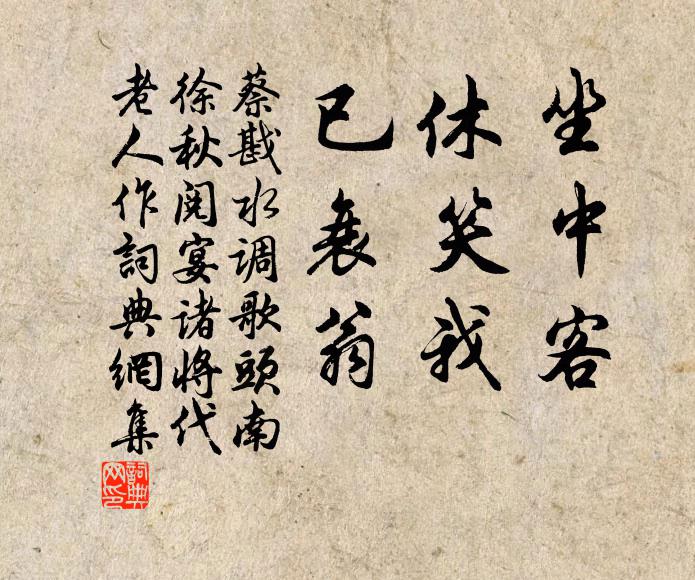 坐中客
休笑我
已衰翁
蔡戡水调歌頭南
徐秋阅宴诸將代
老人作詞典網集
詞典网印